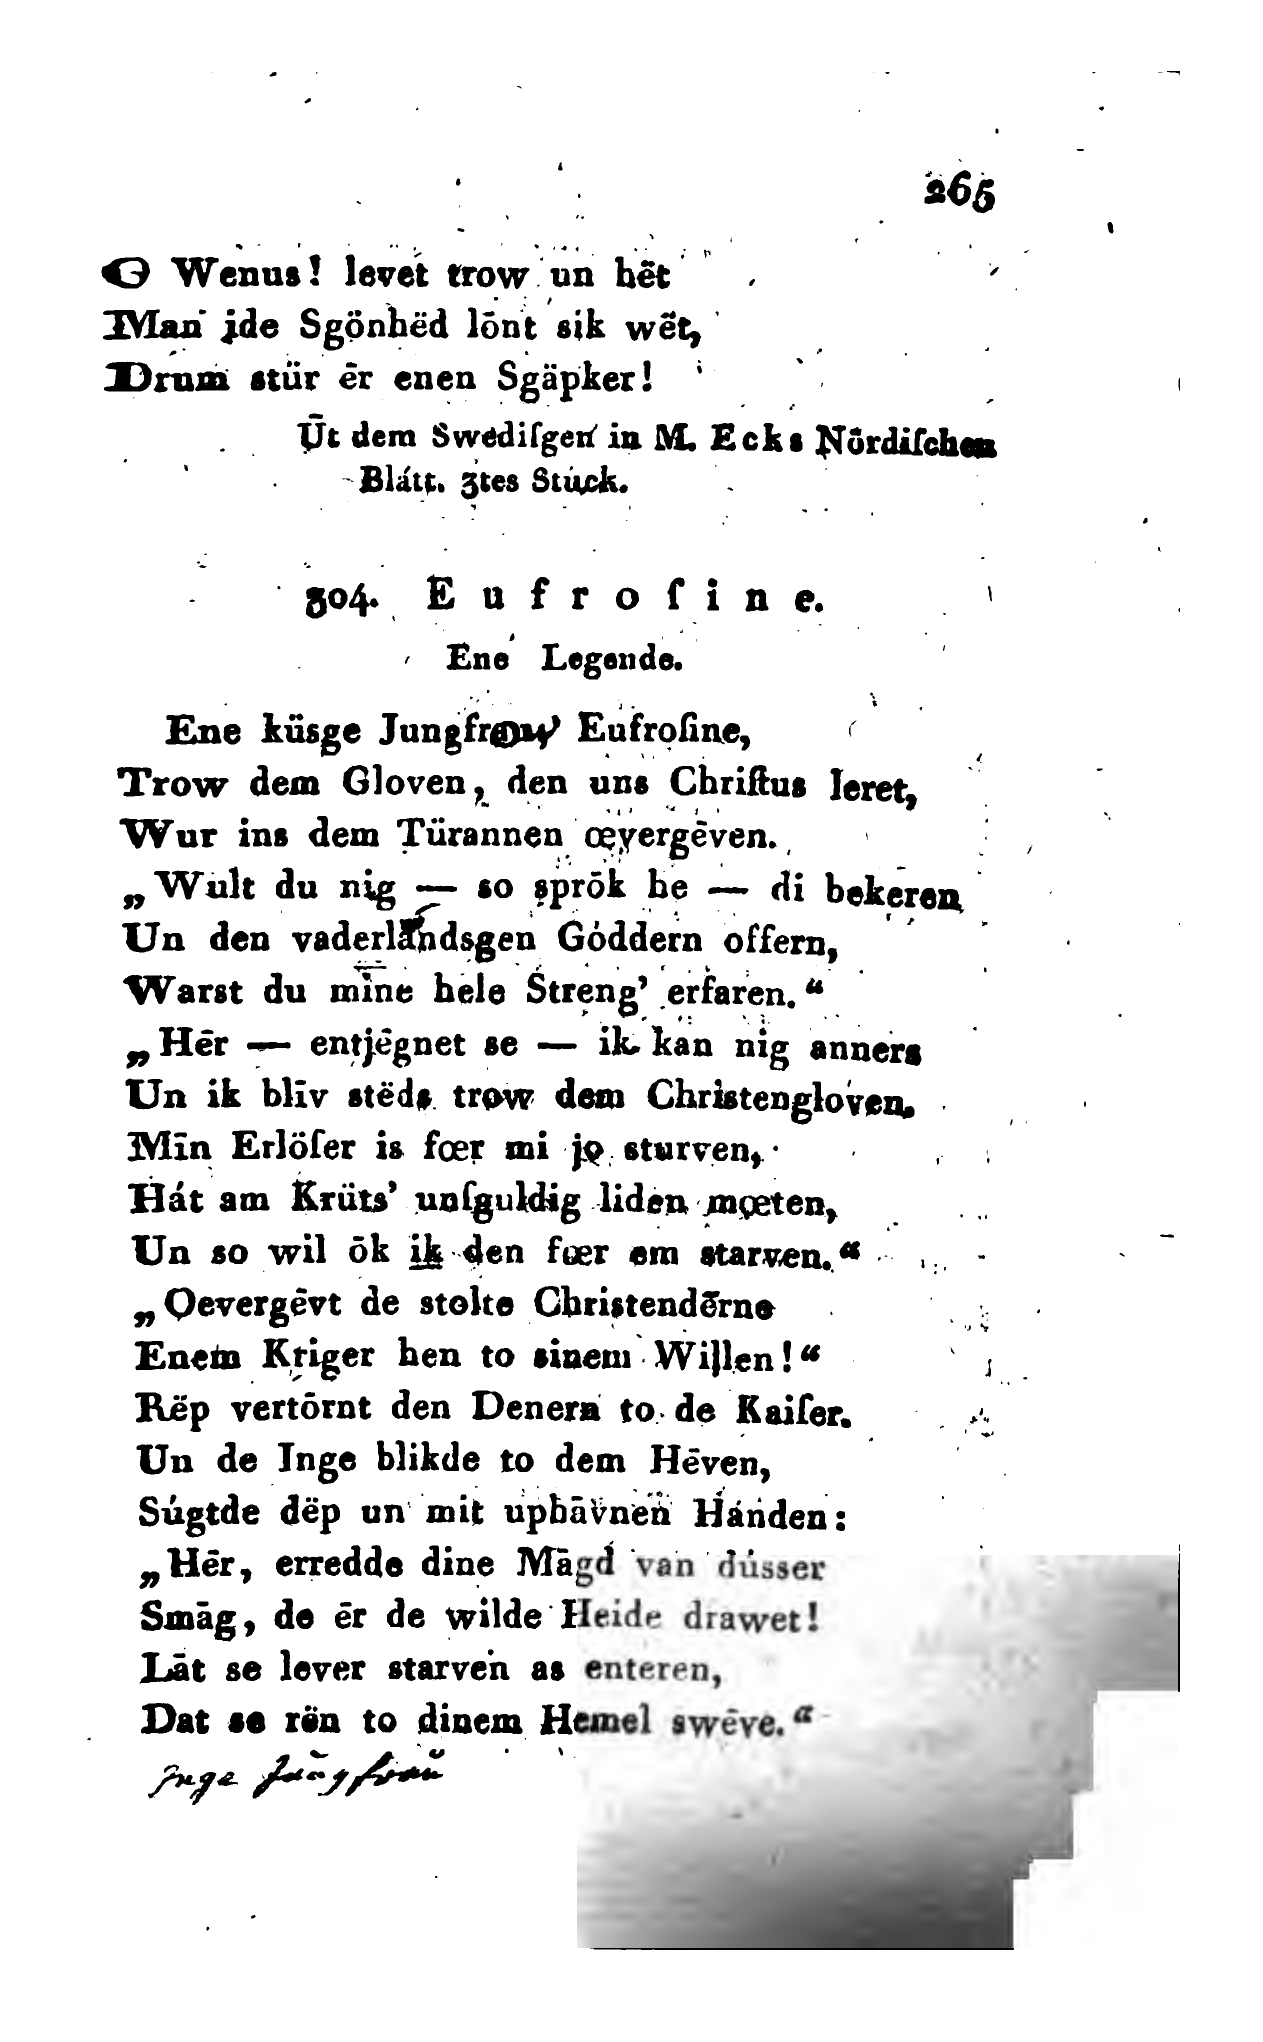 265
O Wenus! levet trow un hët
Man jde Sgönhëd lōnt sik wët,
Drum stür ēr enen Sgäpker!
Ūt dem Swediſgen in M. Ecks Nördiſchen
Blátt. 3tes Stúck.
304. Eufroſine.
Ene Legende.
Ene küsge Jungfrow Eufroſine,
Trow dem Gloven, den uns Chriſtus leret,
Wur ins dem Türannen œvergēven.
„Wult du nig — so sprōk he — di bekēren
Un den vaderlándsgen Góddern offern,
Warst du mīne hele Streng’ erfaren.“
„Hēr — entjēgnet se — ik kan nig anners
Un ik blīv stëds trow dem Christengloven.
Mīn Erlöſer is fœr mi jo sturven,
Hát am Krüts’ unſguldig liden mœten,
Un so wil ōk ik den fœr em starven.“
„Oevergēvt de stolte Christendērne
Enem Kriger hen to sinem Willen!“
Rëp vertōrnt den Denern to de Kaiſer.
Un de Inge blikde to dem Hēven,
Súgtde dëp un mit uphāvnen Hánden:
„Hēr, erredde dine Māgd van dússer
Smāg, de ēr de wilde Heide drawet!
Lāt se lever starven as enteren,
Dat se rën to dinem Hemel swēve.“
Inge Jungfrau